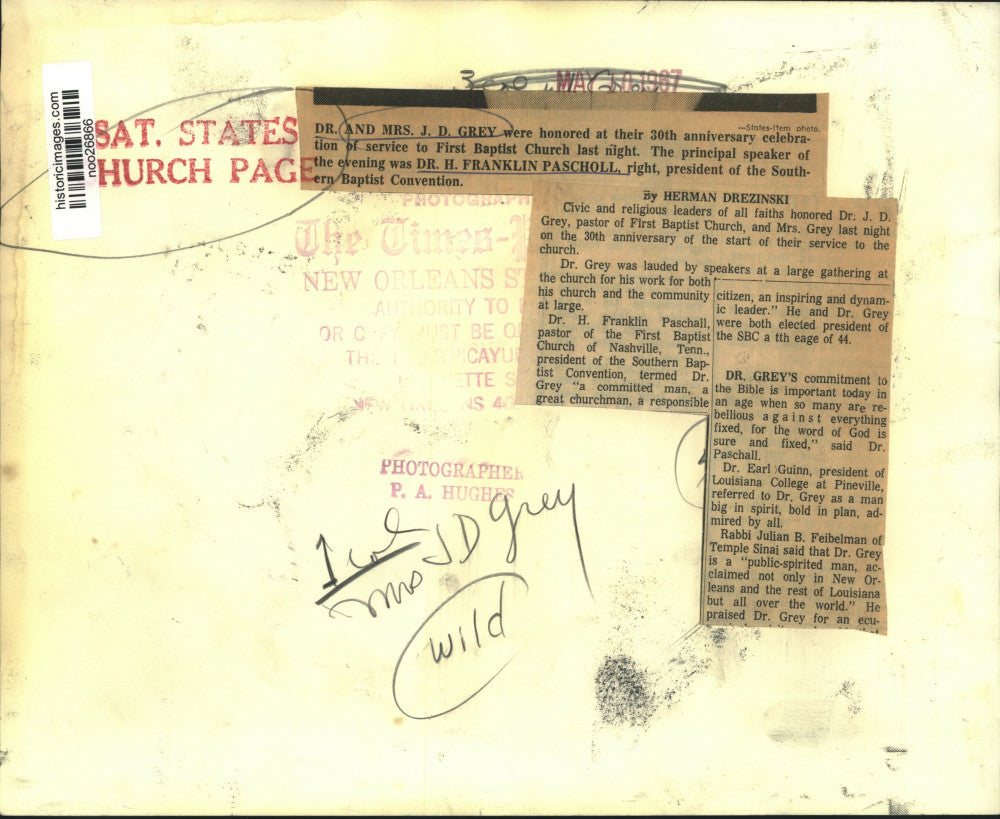 historicimages.com
noo26866
MAY 10 1967
SAT. STATES
CHURCH PAGE
—States-Item photo.
DR. AND MRS. J. D. GREY were honored at their 30th anniversary celebra-
tion of service to First Baptist Church last night. The principal speaker of
the evening was DR. H. FRANKLIN PASCHOLL, right, president of the South-
ern Baptist Convention.
By HERMAN DREZINSKI
Civic and religious leaders of all faiths honored Dr. J. D.
Grey, pastor of First Baptist Church, and Mrs. Grey last night
on the 30th anniversary of the start of their service to the
church.
Dr. Grey was lauded by speakers at a large gathering at
the church for his work for both
his church and the community
at large.
Dr. H. Franklin Paschall,
pastor of the First Baptist
Church of Nashville, Tenn.,
president of the Southern Bap-
tist Convention, termed Dr.
Grey "a committed man, a
great churchman, a responsible
citizen, an inspiring and dynam-
ic leader." He and Dr. Grey
were both elected president of
the SBC a tth eage of 44.
DR. GREY'S commitment to
the Bible is important today in
an age when so many are re-
bellious against everything
fixed, for the word of God is
sure and fixed," said Dr.
Paschall.
Dr. Earl Guinn, president of
Louisiana College at Pineville,
referred to Dr. Grey as a man
big in spirit, bold in plan, ad-
mired by all.
Rabbi Julian B. Feibelman of
Temple Sinai said that Dr. Grey
is a "public-spirited man, ac-
claimed not only in New Or-
leans and the rest of Louisiana
but all over the world." He
praised Dr. Grey for an ecu-
PHOTOGRAPH
The Times-
NEW ORLEANS ST
AUTHORITY TO
OR MUST BE
PHOTOGRAPHER
P. A. HUGHES
1 col
Mrs J D Grey
Wild